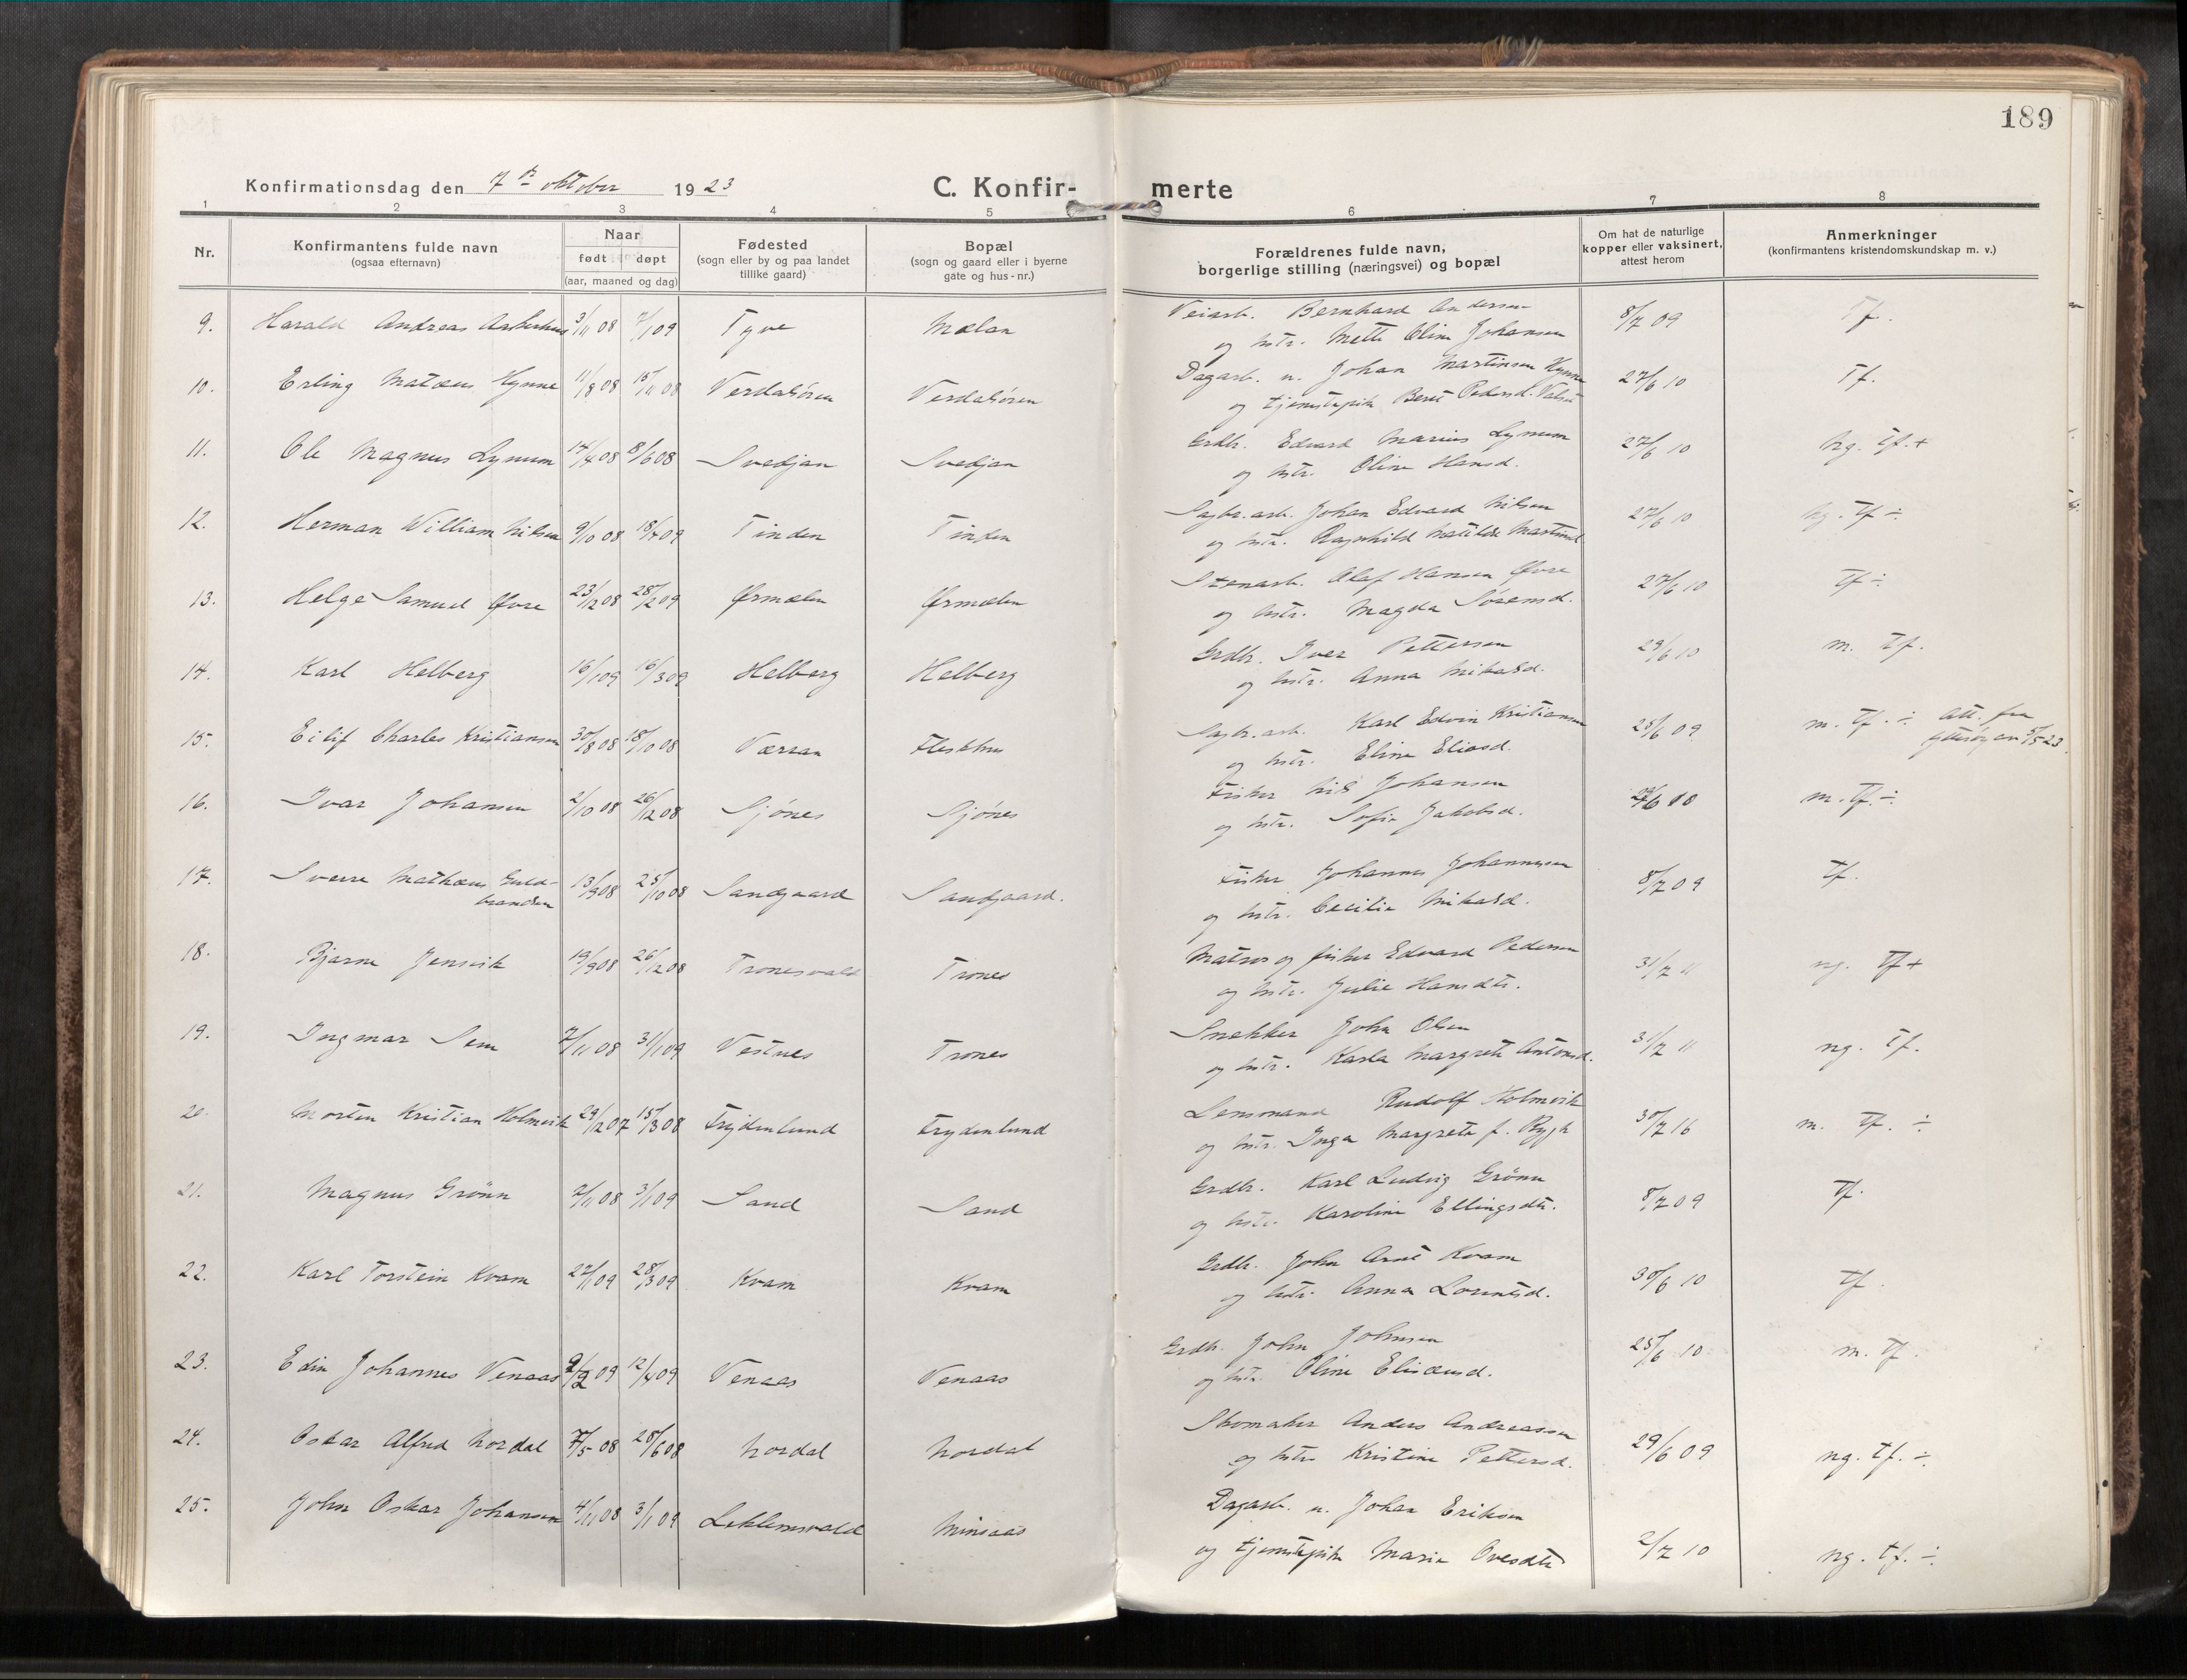 189
Konfirmationsdag den 7de oktober 1923
C. Konfir- merte
1 2 3 4 5 6 7 8
Nr.
Konfirmantens fulde navn
(ogsaa efternavn)
Naar
født døpt
(aar, maaned og dag)
Fødested
(sogn eller by og paa landet
tillike gaard)
Bopæl
(sogn og gaard eller i byerne
gate og hus-nr.)
Forældrenes fulde navn,
borgerlige stilling (næringsvei) og bopæl
Om hat de naturlige
kopper eller vaksinert,
attest herom
Anmerkninger
(konfirmantens kristendomskundskap m. v.)
9. Harald Andreas 3/11 08 09 Tyve Mælan Veiarb. Bernhard Andersen 8/7 09 Tf.
og hstr. Mette Oline Johansen
10. Erling Matæus Hynne 11/8 08 15/11 08 Verdalsören Verdalsören Dagarb. u. Johan Martinsen Hynne 27/6 10 Tf.
og tjenestepike Berit Pedersd. Valset
11. Ole Magnus Lynum 14/4 08 8/6 08 Svedjan Svedjan Grdbr. Edvard Marius Lynum 27/6 10 ng. Tf. +
og hstr. Oline Hansd.
12. Herman William Nilsen 9/10 08 18/4 09 Tinden Tinden Sagbr.arb. Johan Edvard Nilsen 27/6 10 ng. Tf ÷
og hstr. Ragnhild Matilde Martinsd
13. Helge Samuel Øvre 23/12 08 28/2 09 Ørmelen Ørmelen Stenarb. Olaf Hansen Øvre 27/6 10 Tf ÷
og hstr. Magda Sörensd.
14. Karl Helberg 16/1 09 16/3 09 Helberg Helberg Grdbr. Iver Pettersen 29/6 10 m. Tf.
og hstr. Anna Mikalsd.
15. Eilif Charles Kristiansen 30/8 08 18/10 08 Værran Fleskhus Sagbr.arb. Karl Edvin Kristiansen 25/6 09 m. Tf. ÷ att. fra
og hstr. Eline Eliasd. 5/5 23.
16. Ivar Johansen 2/10 08 26/12 08 Sjönes Sjönes Fisker Nils Johansen 29/6 10 m. Tf. ÷
og hstr. Sofie Jakobsd.
17. Sverre Mathæus Guld- 13/9 08 25/10 08 Sandgaard Sandgaard. Fisker Johannes Johannesen 8/7 09 Tf.
brandsen og hstr. Cecilie Mikalsd.
18. Bjarne Jensvik 19/9 08 26/12 08 Tronesvald Trones Matros og fisker Edvard Pedersen 31/7 11 ng. Tf +
og hstr. Julie Hansdtr.
19. Ingmar Sem 7/11 08 31/1 09 Vestnes Trones Snekker John Olsen 31/7 11 ng. Tf.
og hstr. Karla Margrete Antonsd.
20. Morten Kristian Holmvik 29/12 07 15/3 08 Frydenlund Frydenlund Lensmand Rudolf Holmvik 30/7 16 m. Tf. ÷
og hstr. Inga Margrete f. Rygh
21. Magnus Grönn 2/11 08 3/1 09 Sand Sand Grdbr. Karl Ludvig Grönn 8/7 09 Tf.
og hstr. Karoline Ellingsdtr.
22. Karl Torstein Kvam 22/1 09 28/3 09 Kvam Kvam Grdbr. John Arnt Kvam 30/6 10 Tf.
og hstr. Anna Lorentsd.
23. Edin Johannes Venaas 9/2 09 12/4 09 Venaas Venaas Grdbr. John Johnsen 25/6 10 m. Tf
og hstr. Oline Eliseusd.
24. Oskar Alfred Nordal 7/5 08 28/6 08 Nordal Nordal Skomaker Anders Andreassen 29/6 09 ng. Tf. ÷
og hstr. Kristine Pettersd.
25. John Oskar Johansen 4/11 08 3/1 09 Leklemsvald Minsaas Dagarb. u. Johan Eriksen 2/7 10 ng. Tf. ÷
og tjenestepike Marie Ovesdtr